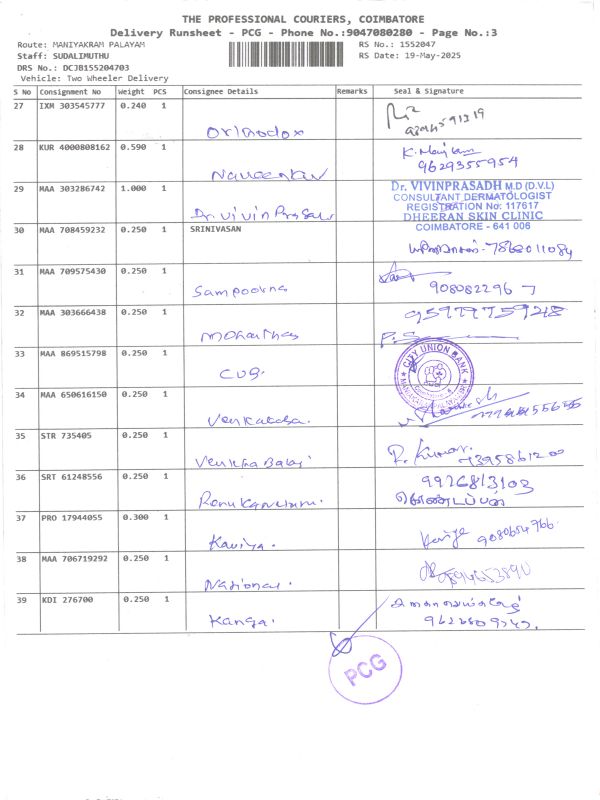 THE PROFESSIONAL COURIERS, COIMBATORE
Delivery Runsheet - PCG - Phone No.:9047080280 - Page No.:3
Route: MANIYAKRAM PALAYAM
RS No.: 1552047
Staff: SUDALIMUTHU
RS Date: 19-May-2025
DRS No.: DCJB155204703
Vehicle: Two Wheeler Delivery
S No Consignment No Weight PCS Consignee Details Remarks Seal & Signature
27 IXM 303545777 0.240 1
Orthodox
28 KUR 4000808162 0.590 1
K. Manikam
9629355954
29 MAA 303286742 1.000 1
Dr. Vivin Prasad
Dr. VIVINPRASADH M.D (D.V.L)
CONSULTANT DERMATOLOGIST
REGISTRATION No: 117617
DHEERAN SKIN CLINIC
COIMBATORE - 641 006
30 MAA 708459232 0.250 1 SRINIVASAN
7868011084
31 MAA 709575430 0.250 1
Sampoorna
908082296 7
32 MAA 303666438 0.250 1
33 MAA 869515798 0.250 1
CUB.
CITY UNION BANK
34 MAA 650616150 0.250 1
35 STR 735405 0.250 1
Venkita Balaji
R. Kumar.
7395861200
36 SRT 61248556 0.250 1
9926813103
கொண்டப்பன்
37 PRO 17944055 0.300 1
Kaviya.
9080654766
38 MAA 706719292 0.250 1
National.
39 KDI 276700 0.250 1
Kanga.
PCG